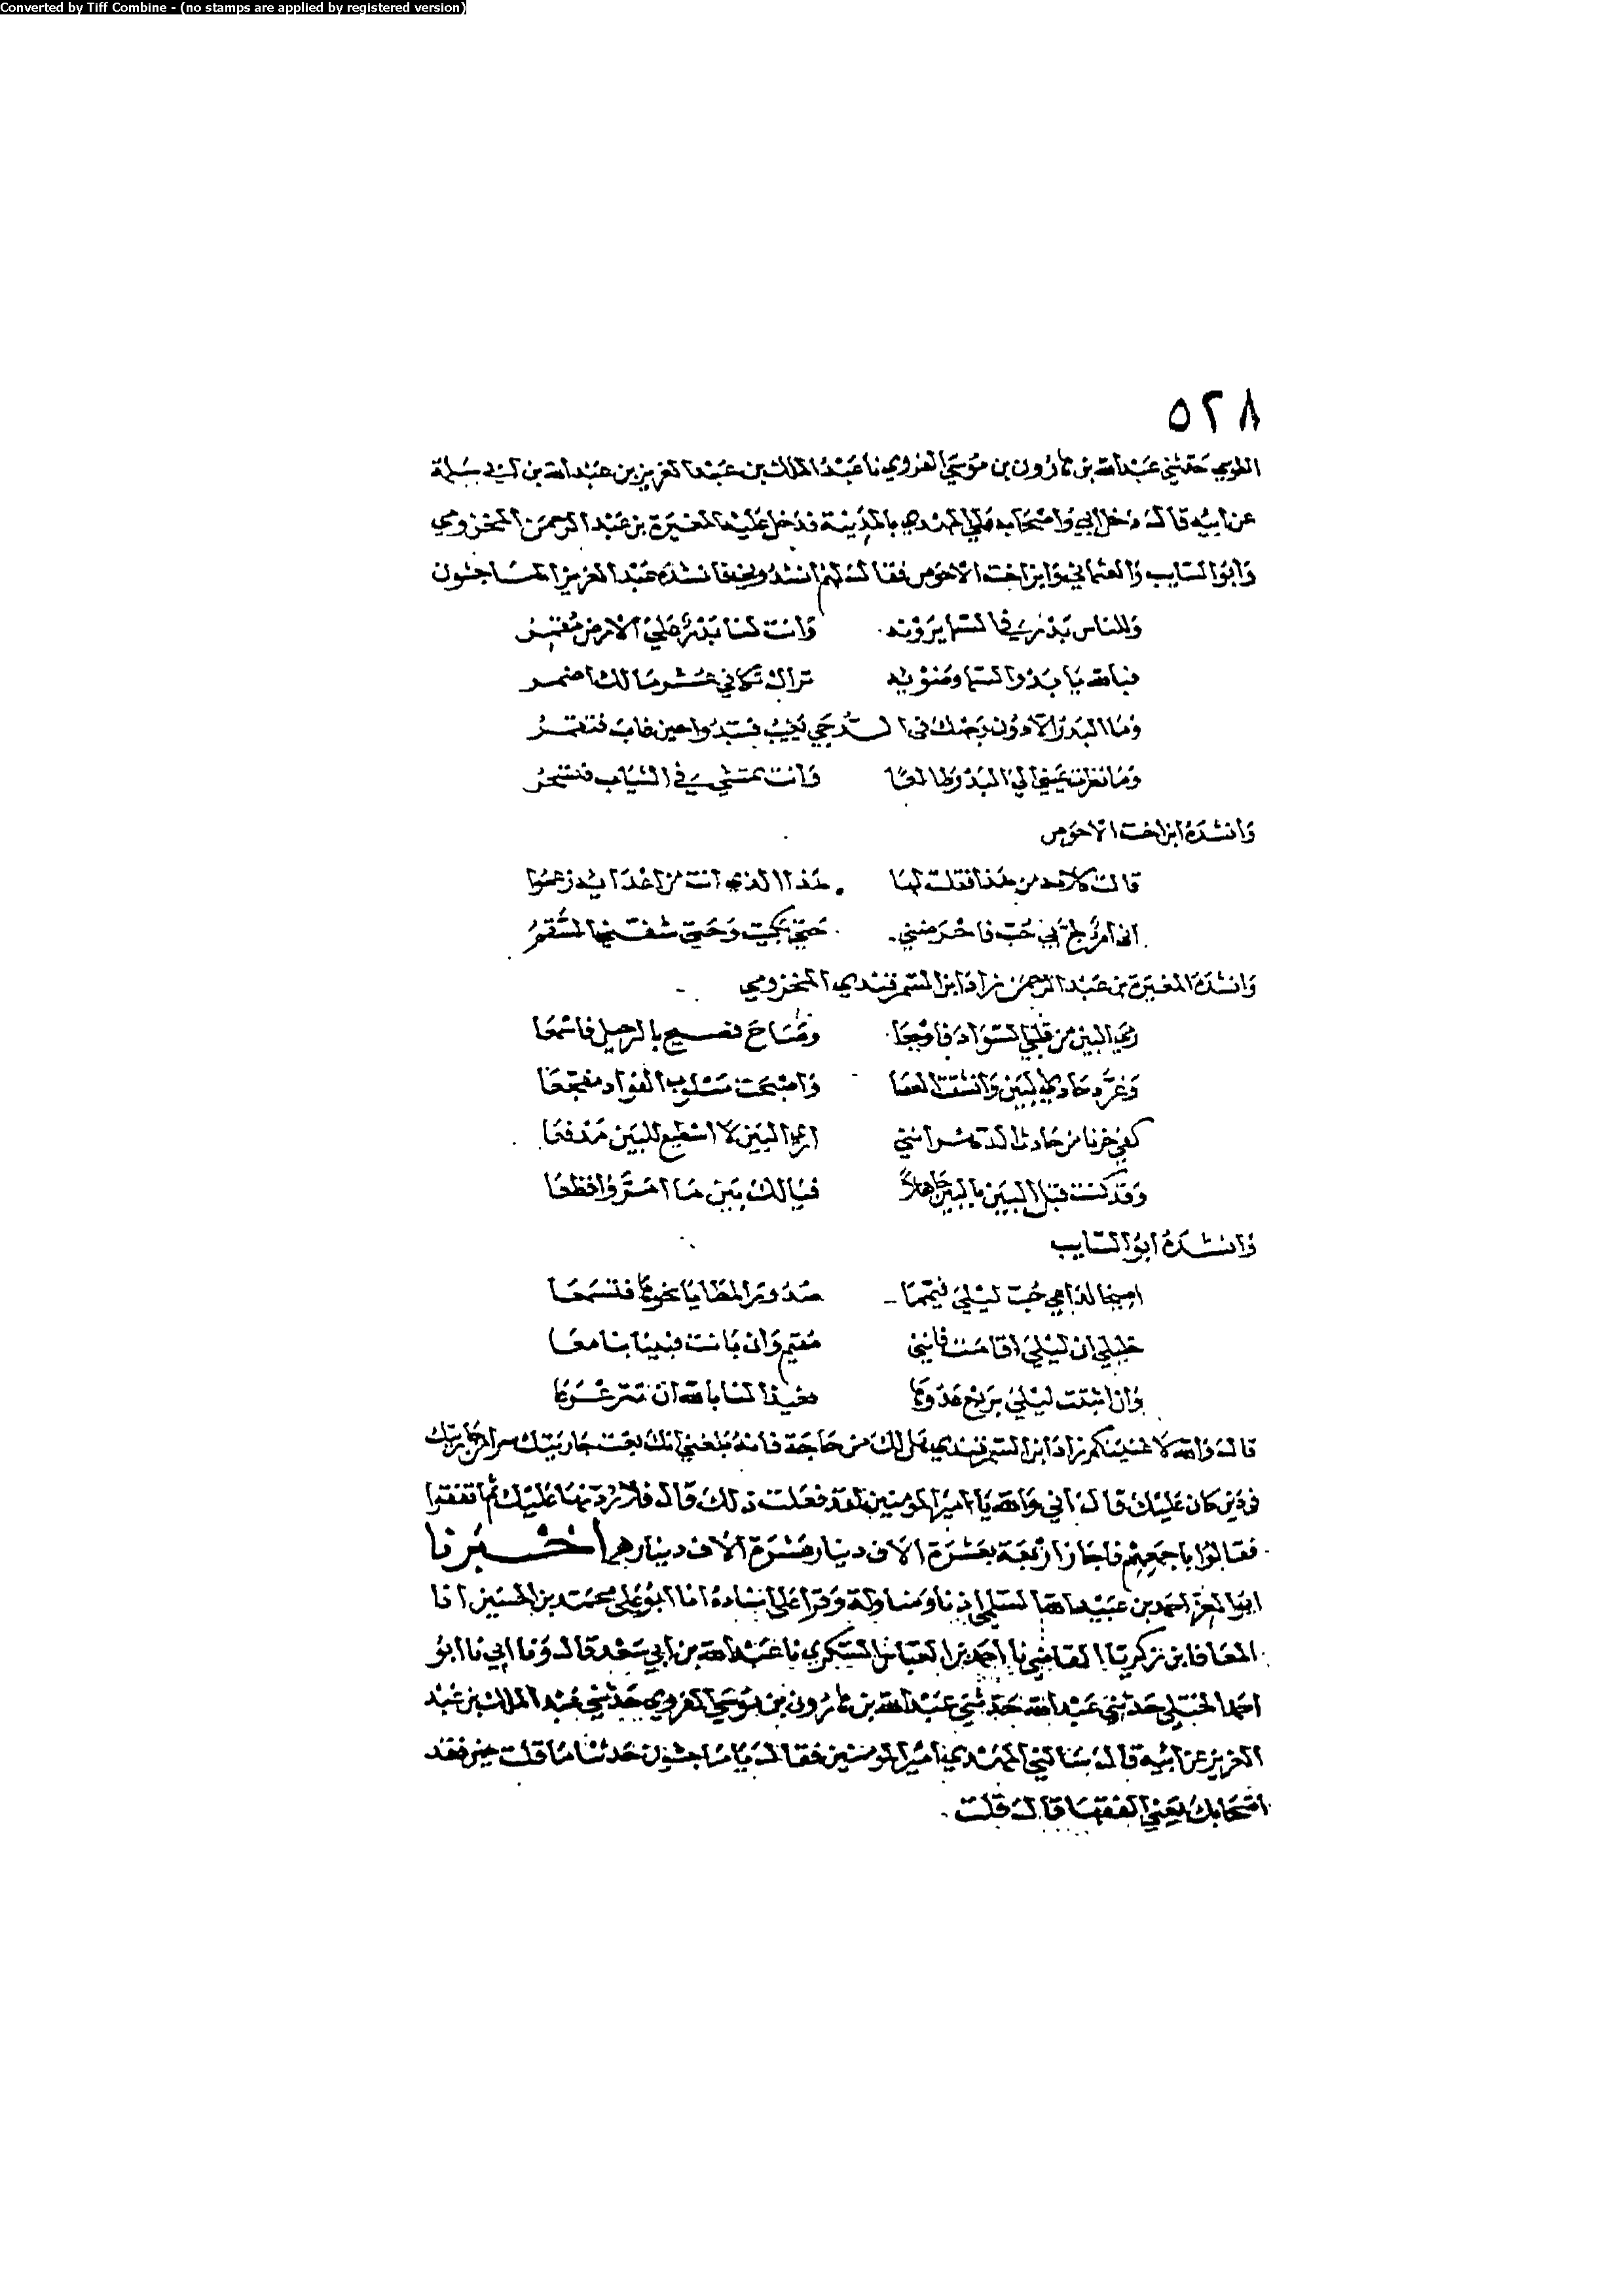 Converted by Tiff Combine - (no stamps are applied by registered version)
٥٢٨
حدثني عبد الله بن هارون بن موسى الفروي نا عبد الملك بن عبد العزيز بن عبد الله بن ابي سلمة
عن ابيه قال دخل ابي واصحابه على المهدي بالمدينة فدخل عليه المغيرة بن عبد الرحمن المخزومي
وابو السايب والعثماني وابن اخت الاحوص فقال لهم انشدوني فانشده عبد العزيز الماجشون
وللناس بدر في السما يرونه وانت لنا بدر على الارض مقمر
فبالله يا بدر السما وضوئه تراك تكافي عشر مالك اضمر
وما البدر الا دون وجهك في الدجى يغيب فتبدوا حين غاب فتقمر
وما نظرت عيني الى البدر طالعا وانت تمشي في الثياب فتسحر
وانشده ابن اخت الاحوص
قالت كلابه من هذا فقلت لها هذا الذي انت من اعدايه زعموا
اني امرؤ لج بي حب فاحرضني حتى بكيت وحتى شفني السقم
وانشده المغيرة بن عبد الرحمن زاد ابن السمرقندي المخزومي
رمى البين من قلبي السواد فاوجعا وصاح فصيح بالرحيل فاسمعا
وغرد حادي البين وانشقت العصا واصبحت مسلوب الفواد مفجعا
كفى حزنا من حادث الدهر انني ارى البين لا اسطيع للبين مدفعا
وقد كنت قبل البين بالبين جاهلا فيالك بين ما امر وافظعا
وانشده ابو السايب
اصيخا لداعي حب ليلى فيمما صدور المطايا نحوها فتسمعا
خليلي ان ليلى اقامت فانني مقيم وان بانت فبينا بنا معا
وان اثبتت ليلى بربع عدوها فعيذا لنا بالله ان تتزعزعا
قال والله لاغنينكم زاد ابن السمرقندي هل لك من حاجة فانه بلغني انك بعت جاريتك
في دين كان عليك قال اني والله يا امير المومنين لقد فعلت ذلك قال فلا تردنها عليك ثم اتفقوا
فقالوا باجمعهم فاجاز اربعة بعشرة الاف دينار عشرة الاف دينار اخبرنا
ابو العز احمد بن عبيد الله السلمي اذنا ومناولة وقرا علي اسناده انا ابو علي محمد بن الحسين انا
المعافا بن زكريا القاضي نا احمد بن العباس العسكري نا عبد الله بن ابي سعد قال ونا ابي نا ابو
احمد الختلي حدثني عبد الله حدثني عبد الله بن هارون بن موسى الفروي حدثني عبد الملك بن عبد
العزيز عن ابيه قال سالني المهدي امير المومنين فقال يا ماجشون حدثنا ما قلت حين فقد
اصحابك يعني الفقها قال قلت